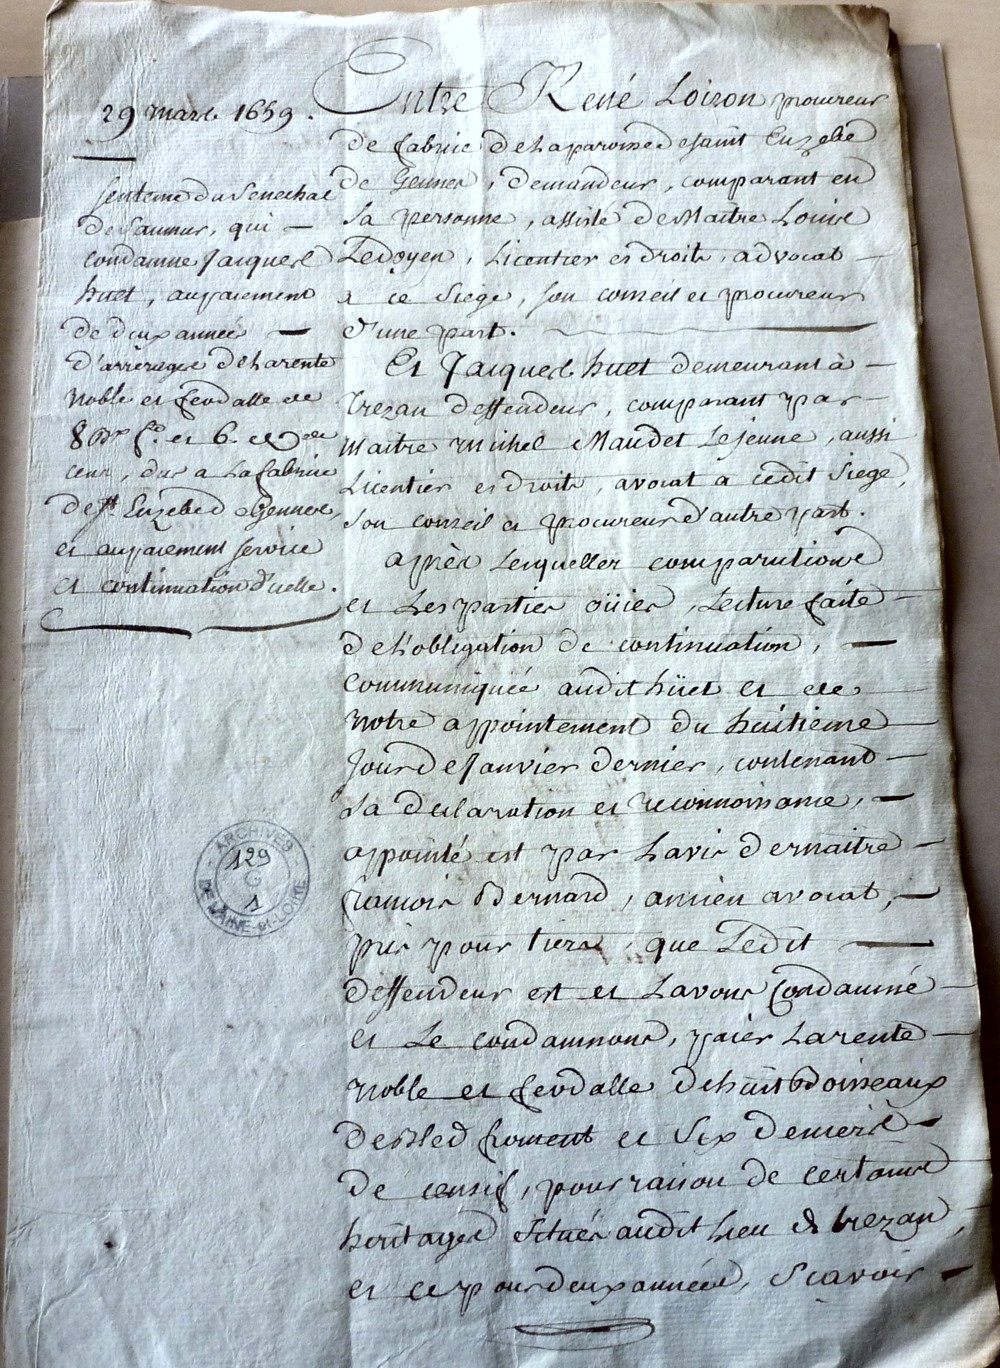 29 mars 1659.
Sentence du Senechal
de Saumur, qui —
condamne Jacques
huet, au paiement
de deux années —
d'arrerages de la rente
noble et feodalle de
8 Bx f.t et 6. de
cens, dus a la fabrice
de St. Euzebe de Gennes,
et au paiement service
et continuation d'icelle.
Entre René Loizon procureur
de fabrice de la paroisse de saint Euzebe
de Gennes, demandeur, comparant en
sa personne, assisté de Maitre Louis
Ledoyen, Licentier es droits, advocat —
a ce Siege, son conseil et procureur
d'une part.
Et Jacques huet demeurant à —
trezan deffendeur, comparant par —
maitre michel Maudet Lejeune, aussi
Licentier es droits, avocat a cedit Siege,
son conseil et procureur d'autre part.
après Lesquelles comparutions
et Les parties oüies, Lecture faite —
de l'obligation de continuation, —
communiquée audit hüet et de —
notre appointement du huitieme —
Jour de Janvier dernier, contenant —
sa declaration et reconnoissance, —
appointé est par Lavis de maitre —
françois Bernard, ancien avocat, —
pris pour tiers, que Ledit —
deffendeur est et Lavons condamné —
et Le condamnons, païer La rente —
noble et feodalle de huit Boisseaux
de Bled froment et Six deniers —
de censif, pour raison de certains
heritages Situés audit Lieu de trezan,
et ce pour deux années, Scavoir —
ARCHIVES
DE MAINE-ET-LOIRE
129
G
1